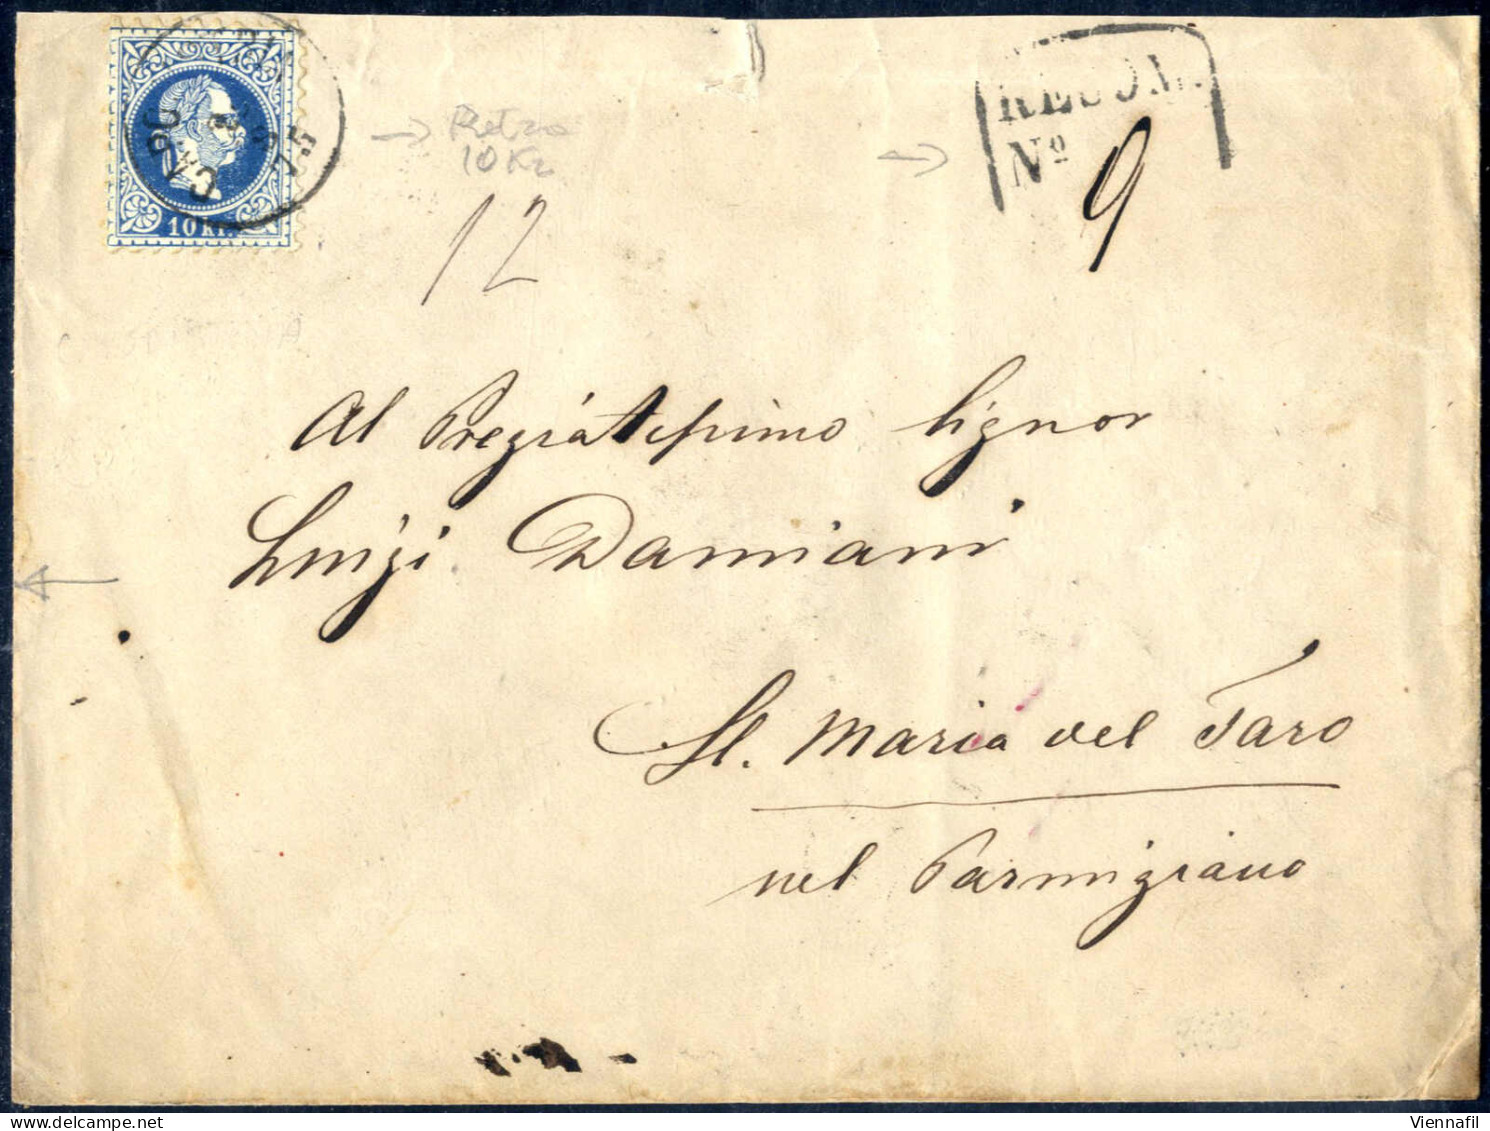 10 Kr.
CAPO
75
RECOM.
Nº
9
Retro
10 Kr
12
Al Pregiatissimo Signor
Luigi Damiani
St. Maria del Taro
nel Parmigiano
Viennafil